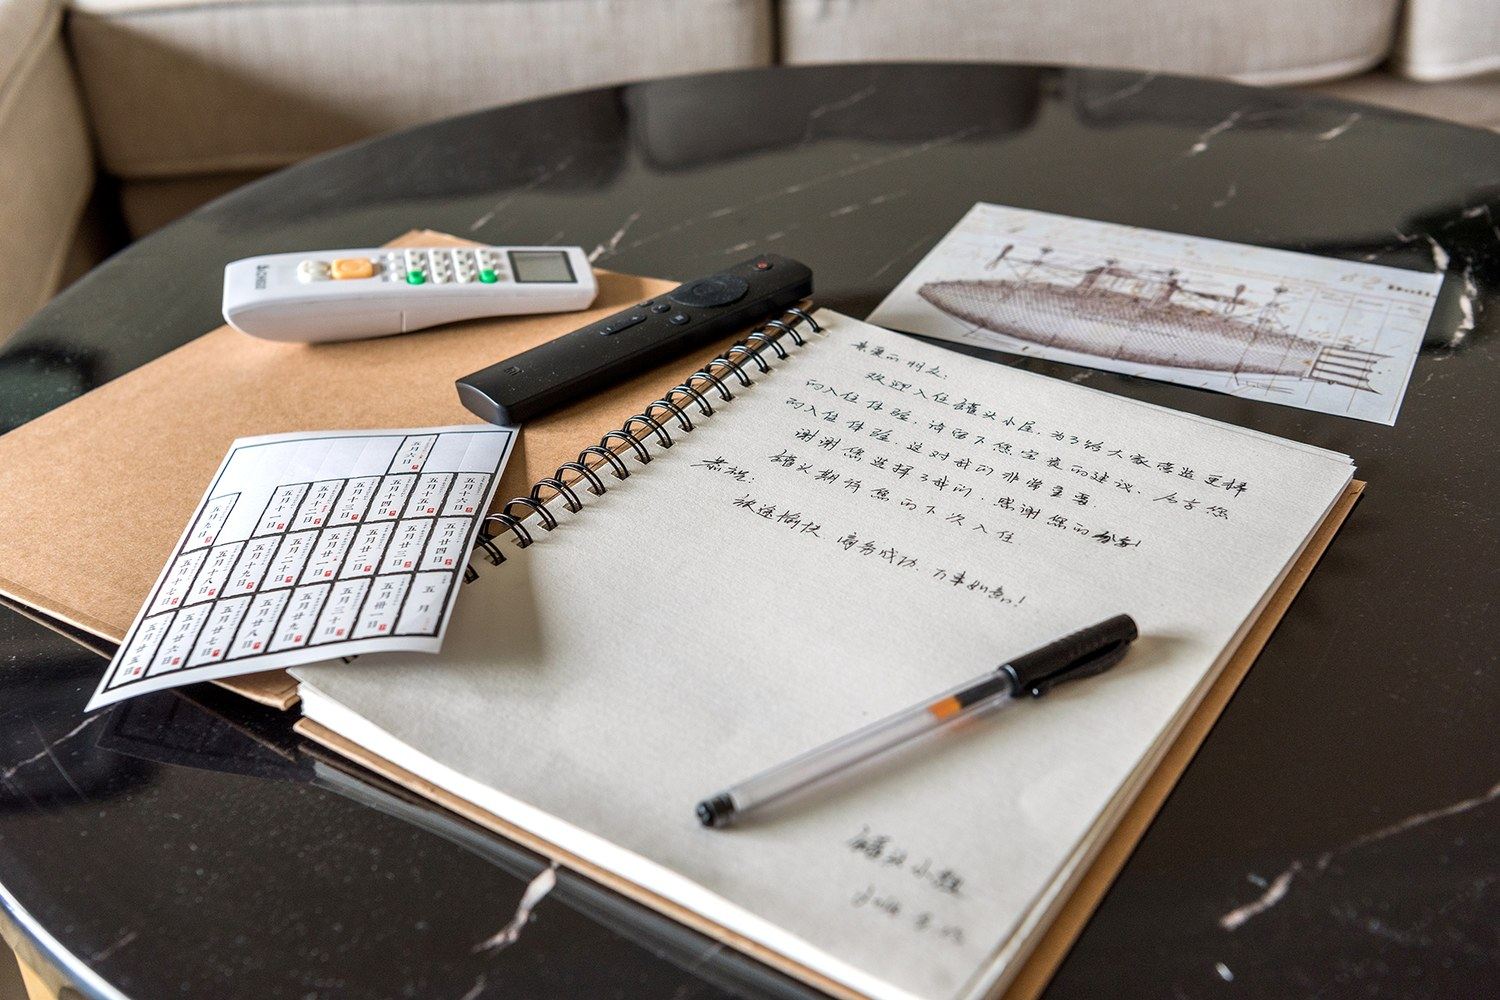 亲爱的朋友:
欢迎入住罐头小屋,为了给大家营造更棒
的入住体验,请留下您宝贵的建议,分享您
的入住体验,这对我们非常重要
谢谢您选择了我们,感谢您的分享!
罐头期待您的下次入住
恭祝:
旅途愉快 商务成功,万事如意!
罐头小组
五月六日
五月九日
五月十一日
五月十二日
五月十三日
五月十四日
五月十五日
五月十六日
五月十七日
五月十八日
五月十九日
五月二十日
五月廿一日
五月廿二日
五月廿三日
五月廿四日
五月廿五日
五月廿六日
五月廿七日
五月廿八日
五月廿九日
五月三十日
五月卅一日
五月